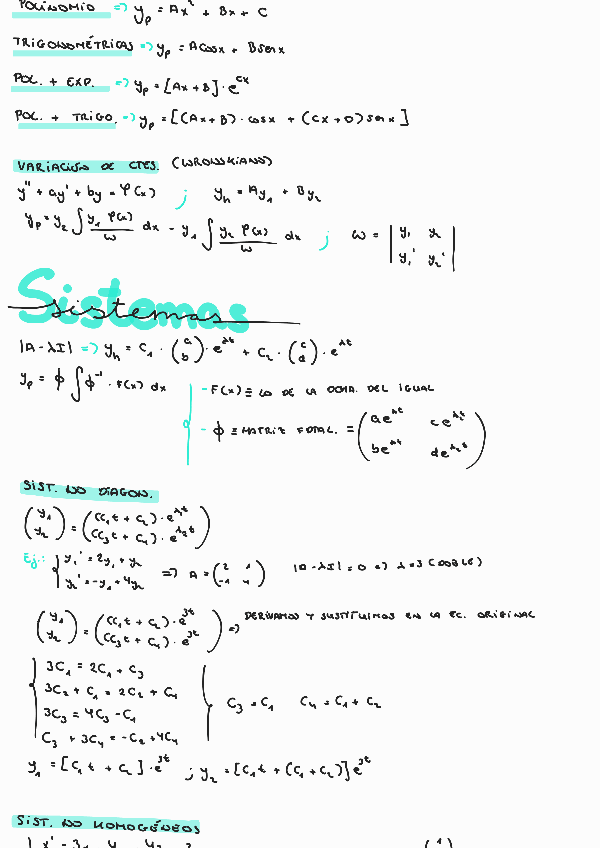 POLINOMIO => yp = Ax² + Bx + C
TRIGONOMÉTRICAS => yp = Acosx + Bsenx
POL. + EXP. => yp = [Ax+B]·e^cx
POL. + TRIGO. => yp = [(Ax+B)·cosx + (Cx+D)senx]
VARIACIÓN DE CTES. (WRONSKIANO)
y'' + ay' + by = φ(x) ; yh = Ay₁ + By₂
yp = y₂ ∫ y₁ φ(x)/ω dx - y₁ ∫ y₂ φ(x)/ω dx ; ω = | y₁ y₂ |
| y₁' y₂' |
Sistemas
sistemas
|A-λI| => yh = C₁·(a b)·e^λt + C₂·(c d)·e^λt
yp = ϕ ∫ ϕ⁻¹·F(x) dx
- F(x) ≡ LO DE LA DCHA. DEL IGUAL
- ϕ ≡ MATRIZ FDTAL. = (ae^λt ce^λ₂t
be^λt de^λ₂t)
SIST. NO DIAGON.
(y₁ y₂) = ((C₁t + C₂)·e^λ₁t
(C₃t + C₄)·e^λ₂t)
Ej.: { y₁' = 2y₁ + y₂
y₂' = -y₁ + 4y₂ => A = (2 1 -1 4) |A-λI| = 0 => λ = 3 (DOBLE)
(y₁ y₂) = ((C₁t + C₂)·e^3t
(C₃t + C₄)·e^3t) => DERIVAMOS Y SUSTITUIMOS EN LA EC. ORIGINAL
3C₁ = 2C₁ + C₃
3C₂ + C₁ = 2C₂ + C₄
3C₃ = 4C₃ - C₁
C₃ + 3C₄ = -C₂ + 4C₄
C₃ = C₁ C₄ = C₁ + C₂
y₁ = [C₁t + C₂]·e^3t ; y₂ = [C₁t + (C₁+C₂)]e^3t
SIST. NO HOMOGÉNEOS